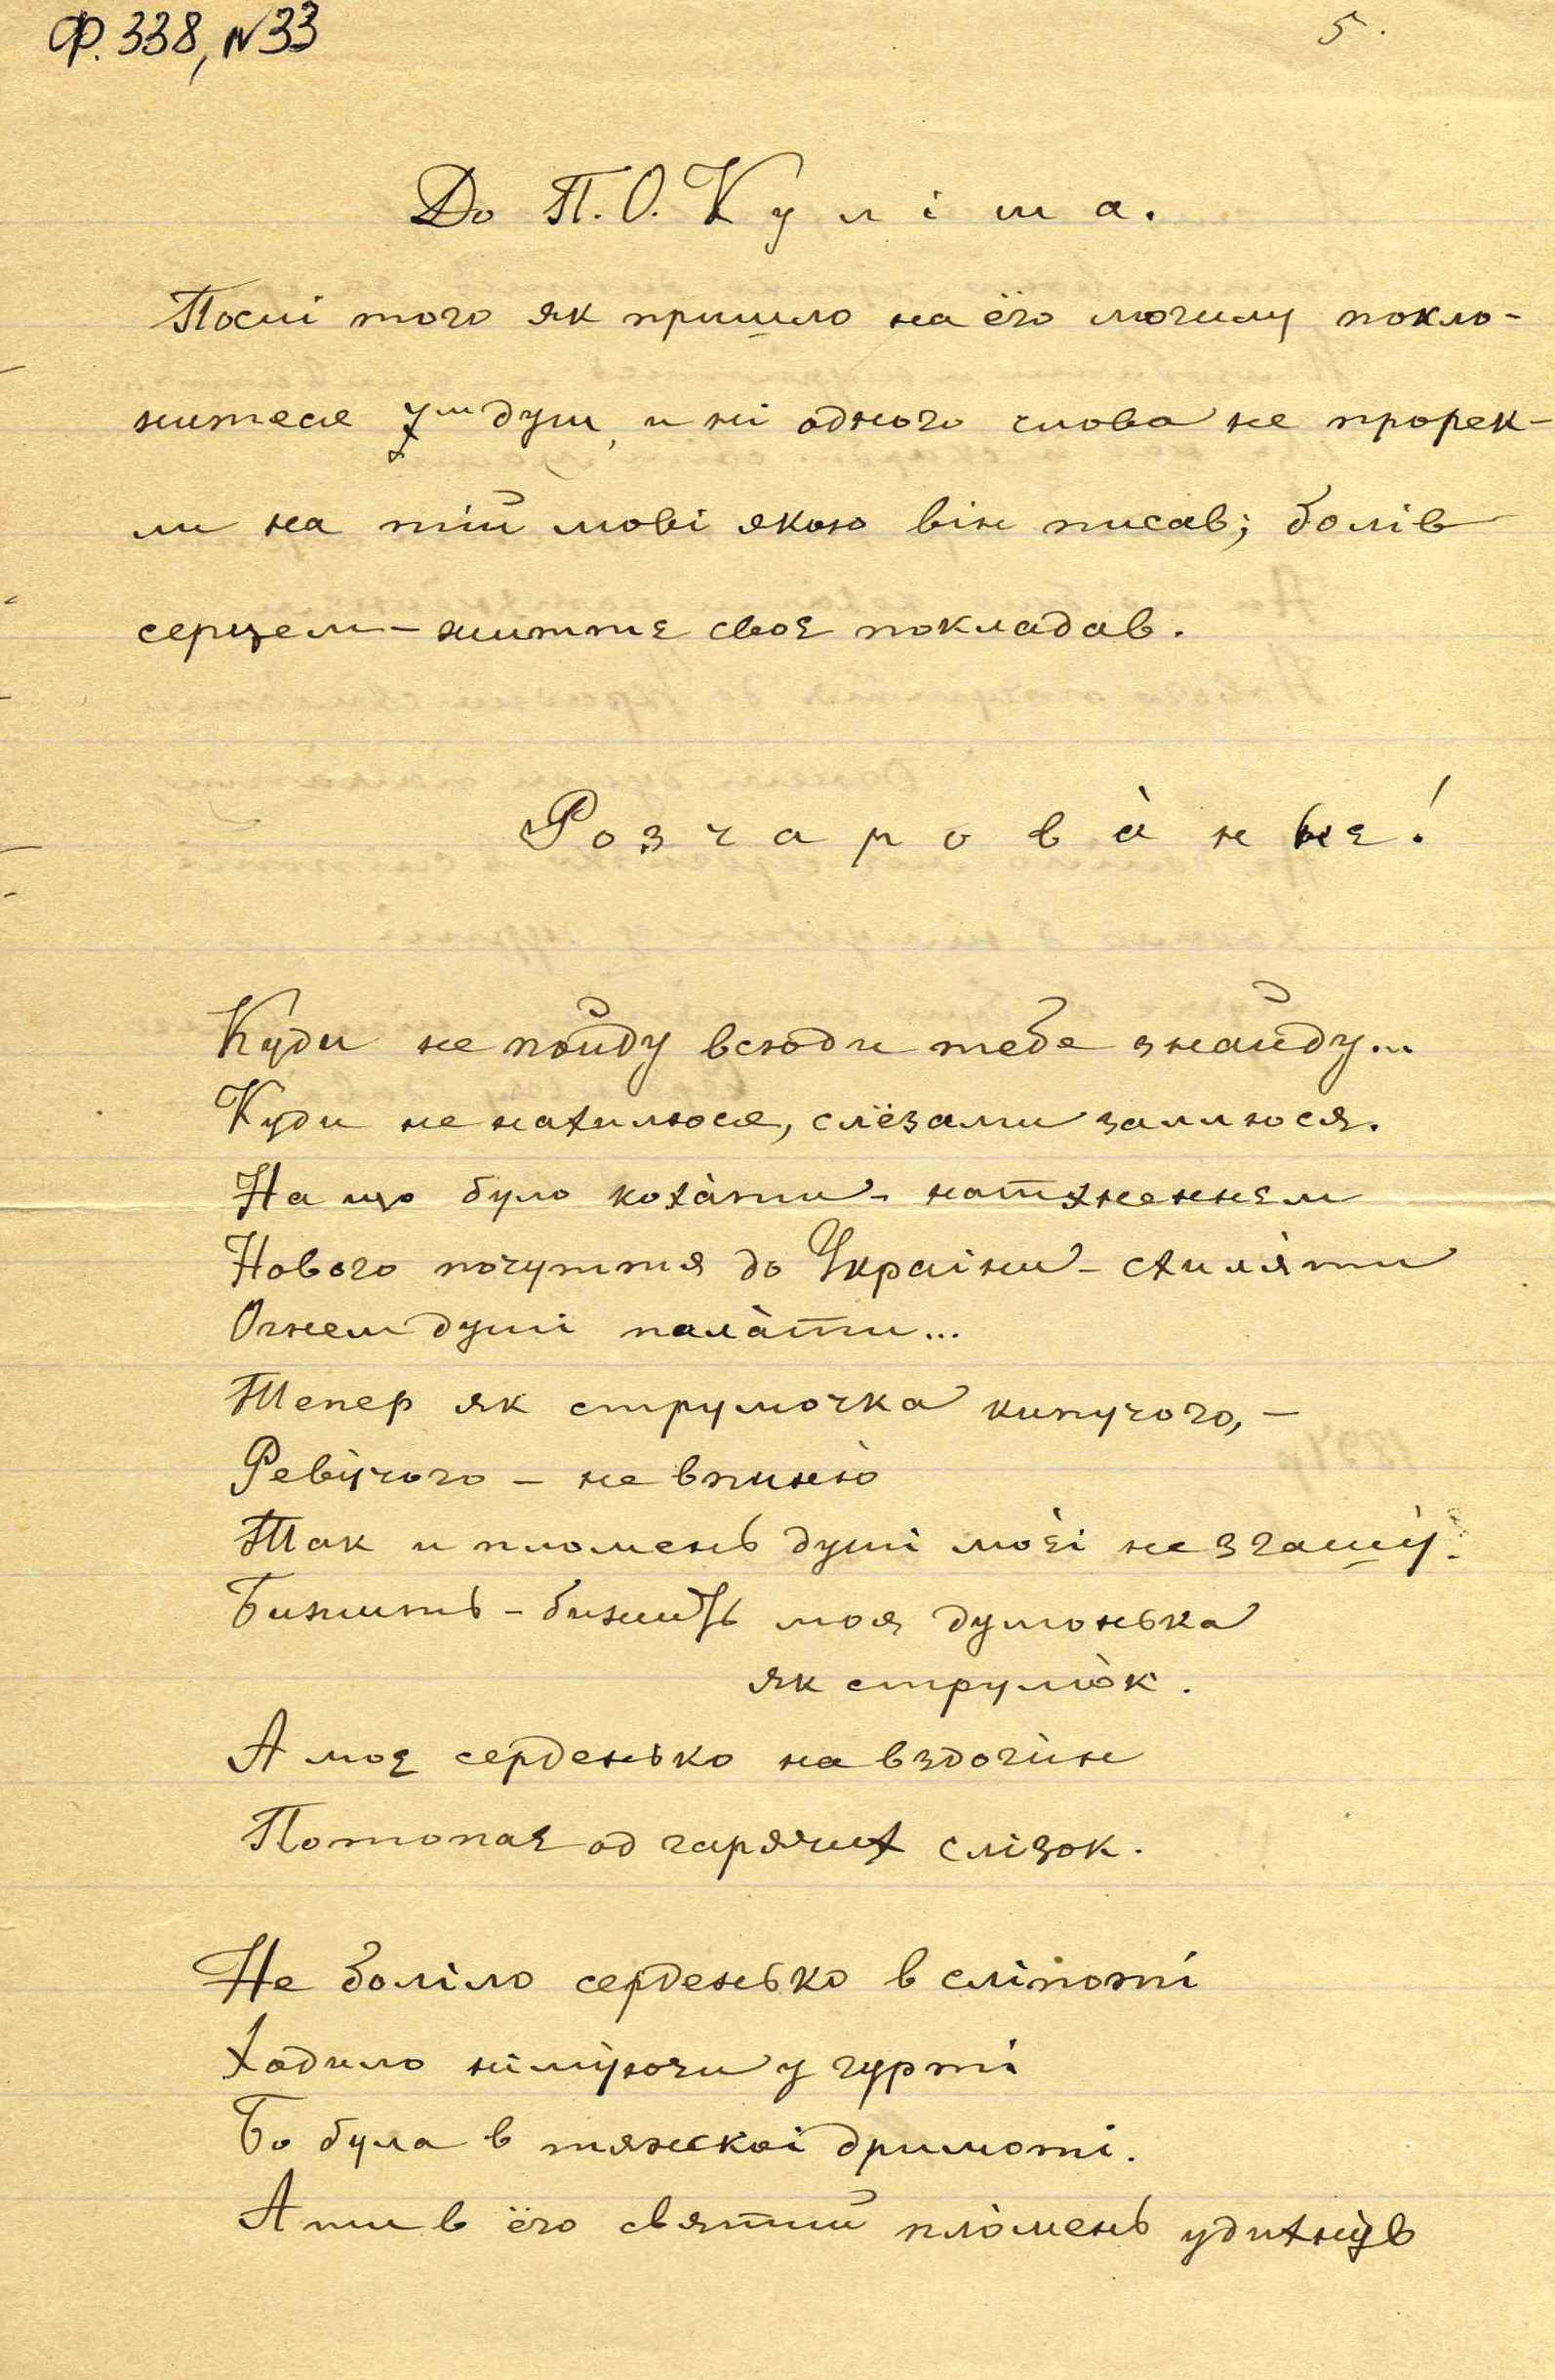 Ф. 338, №33
5.
До П. О. Куліша.
Послі того як пришло на ёго могилу покло-
нитесе 7ми душ, и ні одного слова не прорек-
ли на тій мові якою він писав; болів
серцем – житте своє покладав.
Розчарова̀ннє!
Куди не пойду всюди тебе знайду...
Куди не нахилюсе, слёзами заллюся.
На що було коха̀ти – натхненнєм
Нового почуття до Украіни – схиля̀ти
Огнем душі пала̀ти...
Тепер як струмочка кипучого, –
Реву̀чого – не впиню̀
Так и пломень душі моѐі не згашу̀.
Бижить – бижить моя думонька
як струмо̀к.
А моє серденько на вздогін
Потопає од гарячих слізок.
Не боліло серденько в сліпоті
Ходило німу̀ючи у гурті
Бо була в тяжскоі дримоті.
А ти в ёго святий пло̀мень удихну̀в